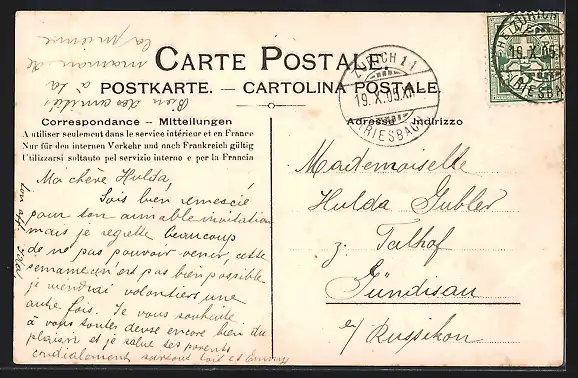 Bien des amitiés
à ta
maman de
la mienne
CARTE POSTALE.
POSTKARTE. — CARTOLINA POSTALE.
Correspondance – Mitteilungen
A utiliser seulement dans le service intérieur et en France
Nur für den internen Verkehr und nach Frankreich gültig
Utilizzarsi soltanto pel servizio interno e per la Francia
Ma chère Hulda,
Sois bien remerciée
pour ton aimable invitation
mais je regrette beaucoup
de ne pas pouvoir venir, cette
semaine m'est pas bien possible
je viendrai volontiers une
autre fois. Je vous souhaite
à vous toutes deux encore bien du
plaisir et je salue tes parents
cordialement surtout toi et Emmy
ton aff.
Adresse – Indirizzo
Mademoiselle
Hulda Gubler
z. Talhof
Gündisau
b/ Russikon.
ZÜRICH 11
19.X.05.XII
(RIESBACH)
ZÜRICH
19.X.05.X
(RIESBACH